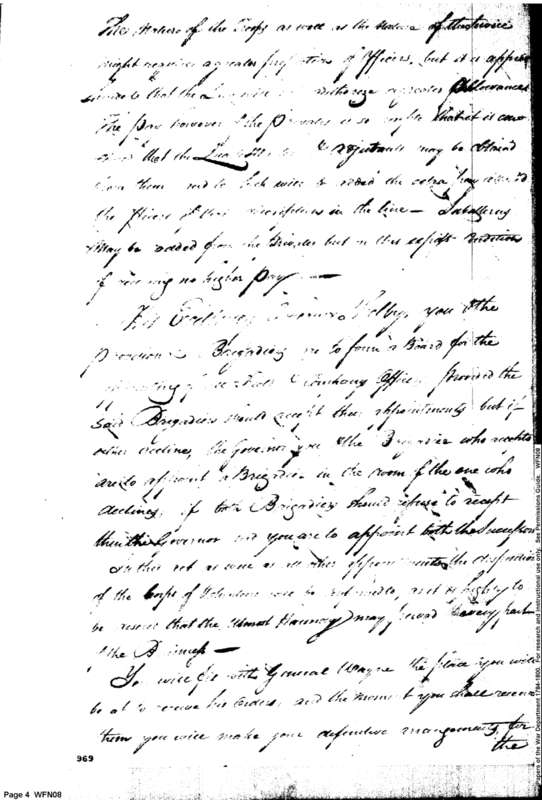 The Nature of the Troops as well as the nature of the service
might require a greater proportion of Officers, but it is
that the Law will authorize a greater Allowance
The pay however of the Privates is so ample that it is
that the & adjutants may be obtained
from them and to such will be added the extra pay
the Officers of their descriptions in the line — Subalterns
May be added from the Privates but on this express condition
of receiving no higher pay —
His Excellency Governor Shelby, you & the
Brigadiers are to form a Board for the
appointing of the Field & Company Officers provided the
said Brigadiers should accept their appointments but if
either declines, the Governor you & the Brigadier who accepts
are to appoint a Brigadier in the room of the one who
declines, if both Brigadiers should refuse to accept
then the Governor and you are to appoint both the Successors
In this act as well as all other appointments the
of the Corps of Volunteers to be as it is highly to
be desired that the utmost Harmony may pervade every part
of the Business —
You will fix with General Wayne the place you will
be at to receive his Orders and the moment you shall receive
them you will make your definitive arrangements, for
the
969
Page 4 WFN08
Papers of the War Department 1784-1800. For research and instructional use only. See Permissions Guide. WFN08